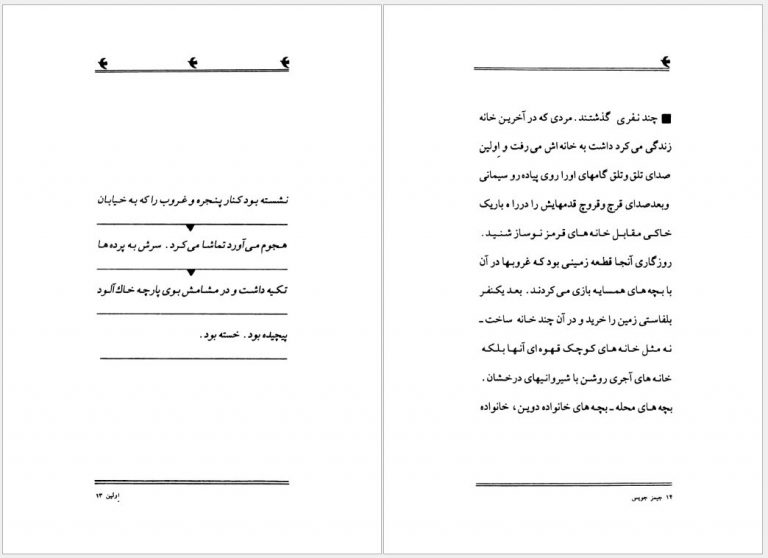 نشسته بود کنار پنجره و غروب را که به خیابان
هجوم می‌آورد تماشا می‌کرد. سرش به پرده ها
تکیه داشت و در مشامش بوی پارچه خاك آلود
پیچیده بود. خسته بود.
اِولین ۱۳
■ چند نفری گذشتند. مردی که در آخرین خانه
زندگی می کرد داشت به خانه اش می رفت و اِولین
صدای تلق وتلق گامهای اورا روی پیاده رو سیمانی
وبعدصدای قرچ وقروچ قدمهایش را دررا ه باریک
خاکی مقابل خانه های قرمز نوساز شنید.
روزگاری آنجا قطعه زمینی بود که غروبها در آن
با بچه های همسایه بازی می کردند. بعد یکنفر
بلفاستی زمین را خرید و در آن چند خانه ساخت ـ
نه مثل خانه های کوچک قهوه ای آنها بلکه
خانه های آجری روشن با شیروانیهای درخشان.
بچه های محله ـ بچه های خانواده دوین، خانواده
۱۴ جیمز جویس